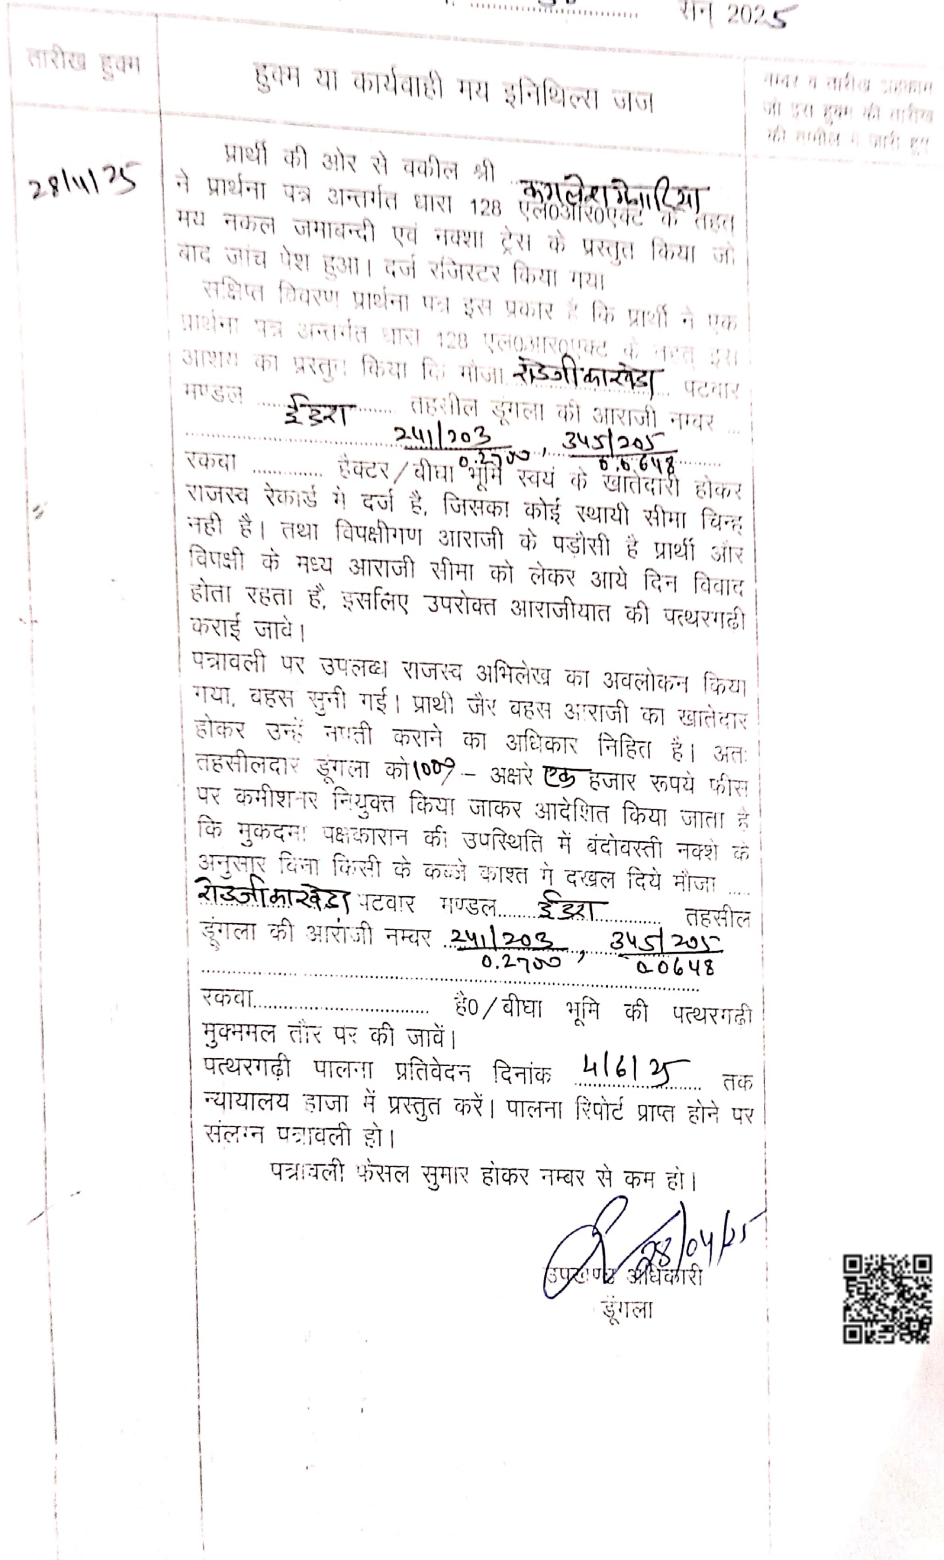 सन् 2025
तारीख हुक्म
हुक्म या कार्यवाही मय इनिथिल्स जज
नम्बर व तारीख अहकाम
जो इस हुक्म की तारीख
की तामील में जारी हुए
28/4/25
प्रार्थी की ओर से वकील श्री
ने प्रार्थना पत्र अन्तर्गत धारा 128 एल0आर0एक्ट के तहत
मय नकल जमाबन्दी एवं नक्शा ट्रेस के प्रस्तुत किया जो
बाद जांच पेश हुआ। दर्ज रजिस्टर किया गया
सक्षिप्त विवरण प्रार्थना पत्र इस प्रकार है कि प्रार्थी ने एक
प्रार्थना पत्र अन्तर्गत धारा 128 एल0आर0एक्ट के तहत इस
आशय का प्रस्तुत किया कि मौजा रोडजी का खेडा पटवार
मण्डल ईडरा तहसील डूंगला की आराजी नम्बर ...
241/203 , 345/205
0.2700 0.0648
रकवा ............. हैक्टर/बीघा भूमि स्वयं के खातेदारी होकर
राजस्व रेकार्ड में दर्ज है, जिसका कोई स्थायी सीमा चिन्ह
नही है। तथा विपक्षीगण आराजी के पड़ौसी है प्रार्थी और
विपक्षी के मध्य आराजी सीमा को लेकर आये दिन विवाद
होता रहता है, इसलिए उपरोक्त आराजीयात की पत्थरगढी
कराई जावे।
पत्रावली पर उपलब्ध राजस्व अभिलेख का अवलोकन किया
गया, वहस सुनी गई। प्राथी जैर वहस आराजी का खातेदार
होकर उन्हें नपती कराने का अधिकार निहित है। अतः
तहसीलदार डूंगला को 1000/- अक्षरे एक हजार रूपये फीस
पर कमीशनर नियुक्त किया जाकर आदेशित किया जाता है
कि मुकदमा पक्षकारान की उपस्थिति में बंदोवस्ती नक्शे के
अनुसार बिना किसी के कब्जे काश्त में दखल दिये मौजा ....
रोडजी का खेडा पटवार मण्डल...... ईडरा ............ तहसील
डूंगला की आराजी नम्बर 241/203 , 345/205
0.2700 0.0648
रकवा............................ है0/बीघा भूमि की पत्थरगढी
मुक्ममल तौर पर की जावें।
पत्थरगढ़ी पालना प्रतिवेदन दिनांक 4/6/25 तक
न्यायालय हाजा में प्रस्तुत करें। पालना रिपोर्ट प्राप्त होने पर
संलग्न पत्रावली हो।
पत्रावली फेसल सुमार होकर नम्बर से कम हो।
28/04/25
उपखण्ड अधिकारी
डूंगला